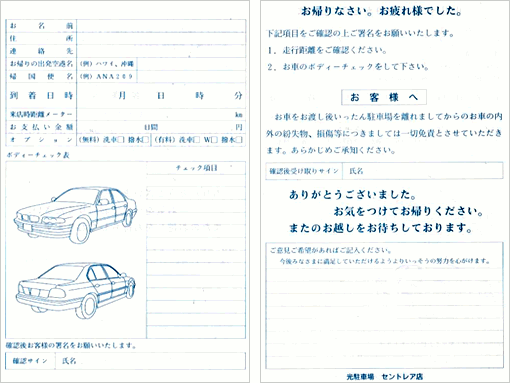 お名前
住所
連絡先
お帰りの出発空港名 (例)ハワイ、沖縄
帰国便名 (例)ANA209
到着日時 月 日 時 分
来店時距離メーター km
お支払い金額 日間 円
オプション (無料)洗車□ 撥水□ (有料)洗車□ W□ 撥水□
ボディーチェック表
チェック項目
確認後お客様の署名をお願いします。
確認サイン 氏名
お帰りなさい。お疲れ様でした。
下記項目をご確認の上ご署名をお願いいたします。
1．走行距離をご確認ください。
2．お車のボディーチェックをして下さい。
お客様へ
お車をお渡し後いったん駐車場を離れましてからのお車の内
外の紛失物、損傷等につきましては一切免責とさせていただき
ます。あらかじめご承知ください。
確認後受け取りサイン 氏名
ありがとうございました。
お気をつけてお帰りください。
またのお越しをお待ちしております。
ご意見ご希望があればご記入ください。
今後みなさまに満足していただけるようよりいっそうの努力を心がけます。
光駐車場 セントレア店